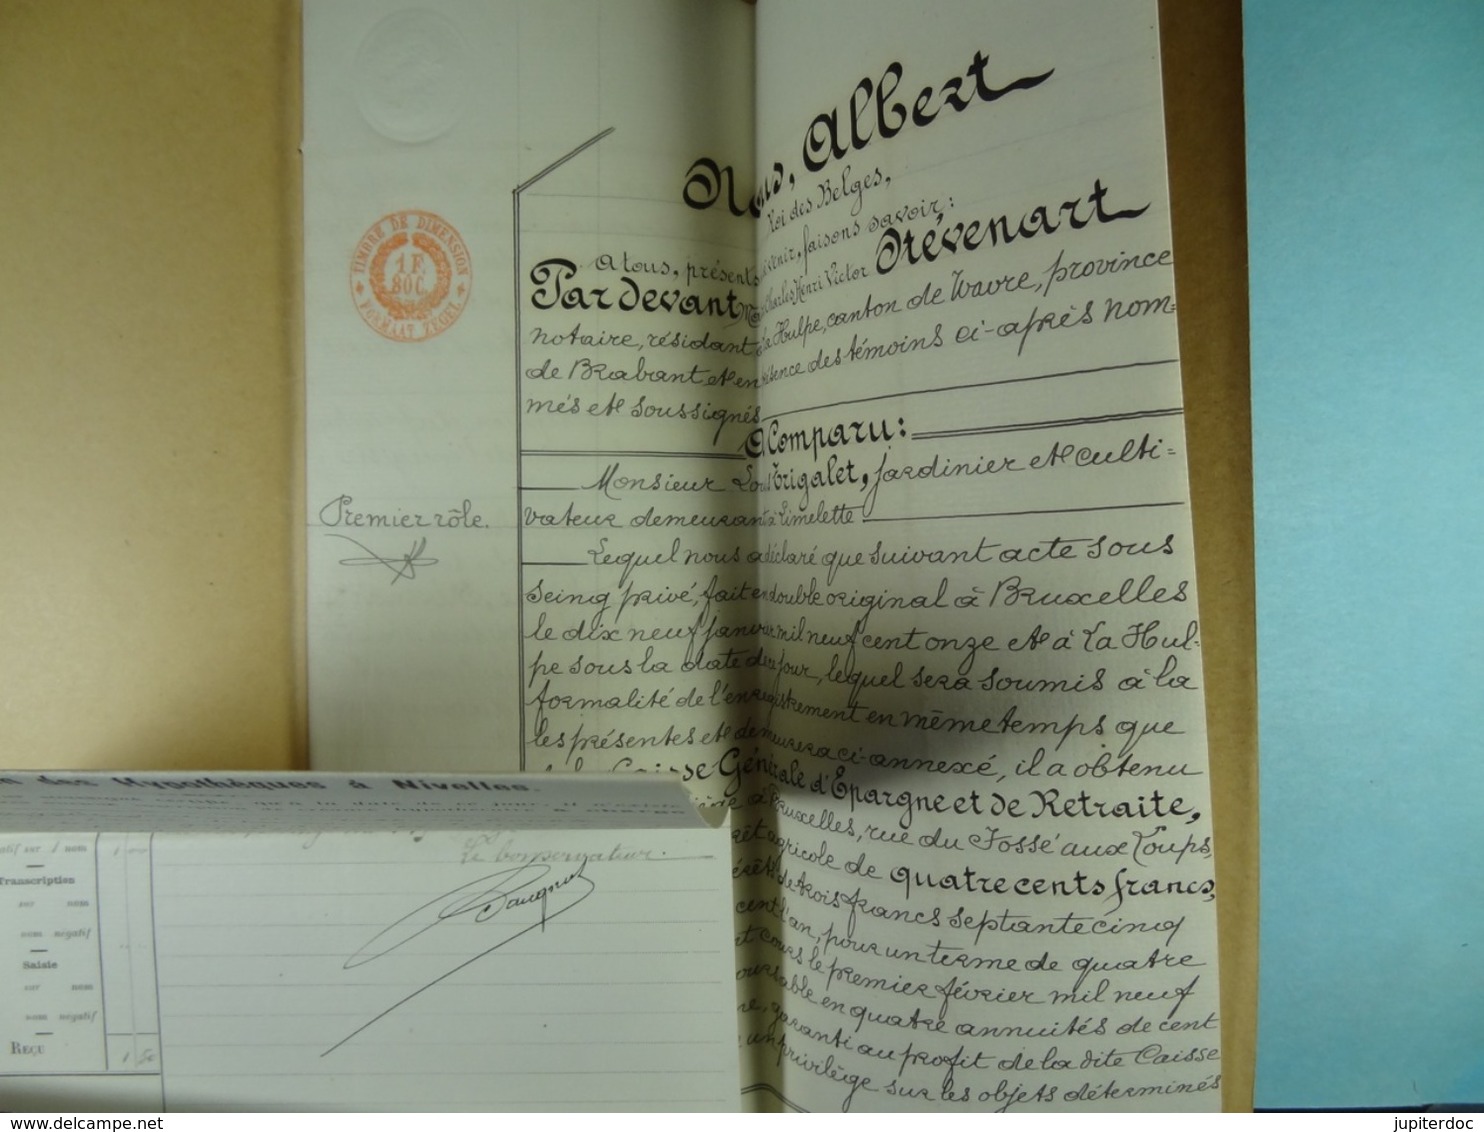 Nous, Albert
Roi des Belges,
A tous, présents à venir, faisons savoir:
Pardevant Charles Henri Victor Stévenart
notaire, résidant à La Hulpe, canton de Wavre, province
de Brabant et en présence des témoins ci-après nom=
més et soussignés
A Comparu:
Monsieur Louis Trigalet, jardinier et culti=
vateur demeurant à Limelette
Lequel nous a déclaré que suivant acte sous
seing privé, fait en double original à Bruxelles
le dix neuf janvier mil neuf cent onze et à La Hul-
pe sous la date de ce jour, lequel sera soumis à la
formalité de l'enregistrement en même temps que
les présentes et demeurera ci-annexé, il a obtenu
de la Caisse Générale d'Epargne et de Retraite,
à Bruxelles, rue du Fossé aux Loups,
prêt agricole de quatre cents francs,
intérêts de trois francs septante cinq
cent l'an, pour un terme de quatre
cours le premier février mil neuf
remboursable en quatre annuités de cent
garanti au profit de la dite Caisse
un privilège sur les objets déterminés
TIMBRE DE DIMENSION
1 F.
80 C.
FORMAAT ZEGEL
Premier rôle.
des Hypothèques à Nivelles.
Le Conservateur.
sur 1 nom
Transcription
sur nom
nom négatif
Saisie
sur nom
nom négatif
REÇU 1 50
jupiterdoc
delcampe.net